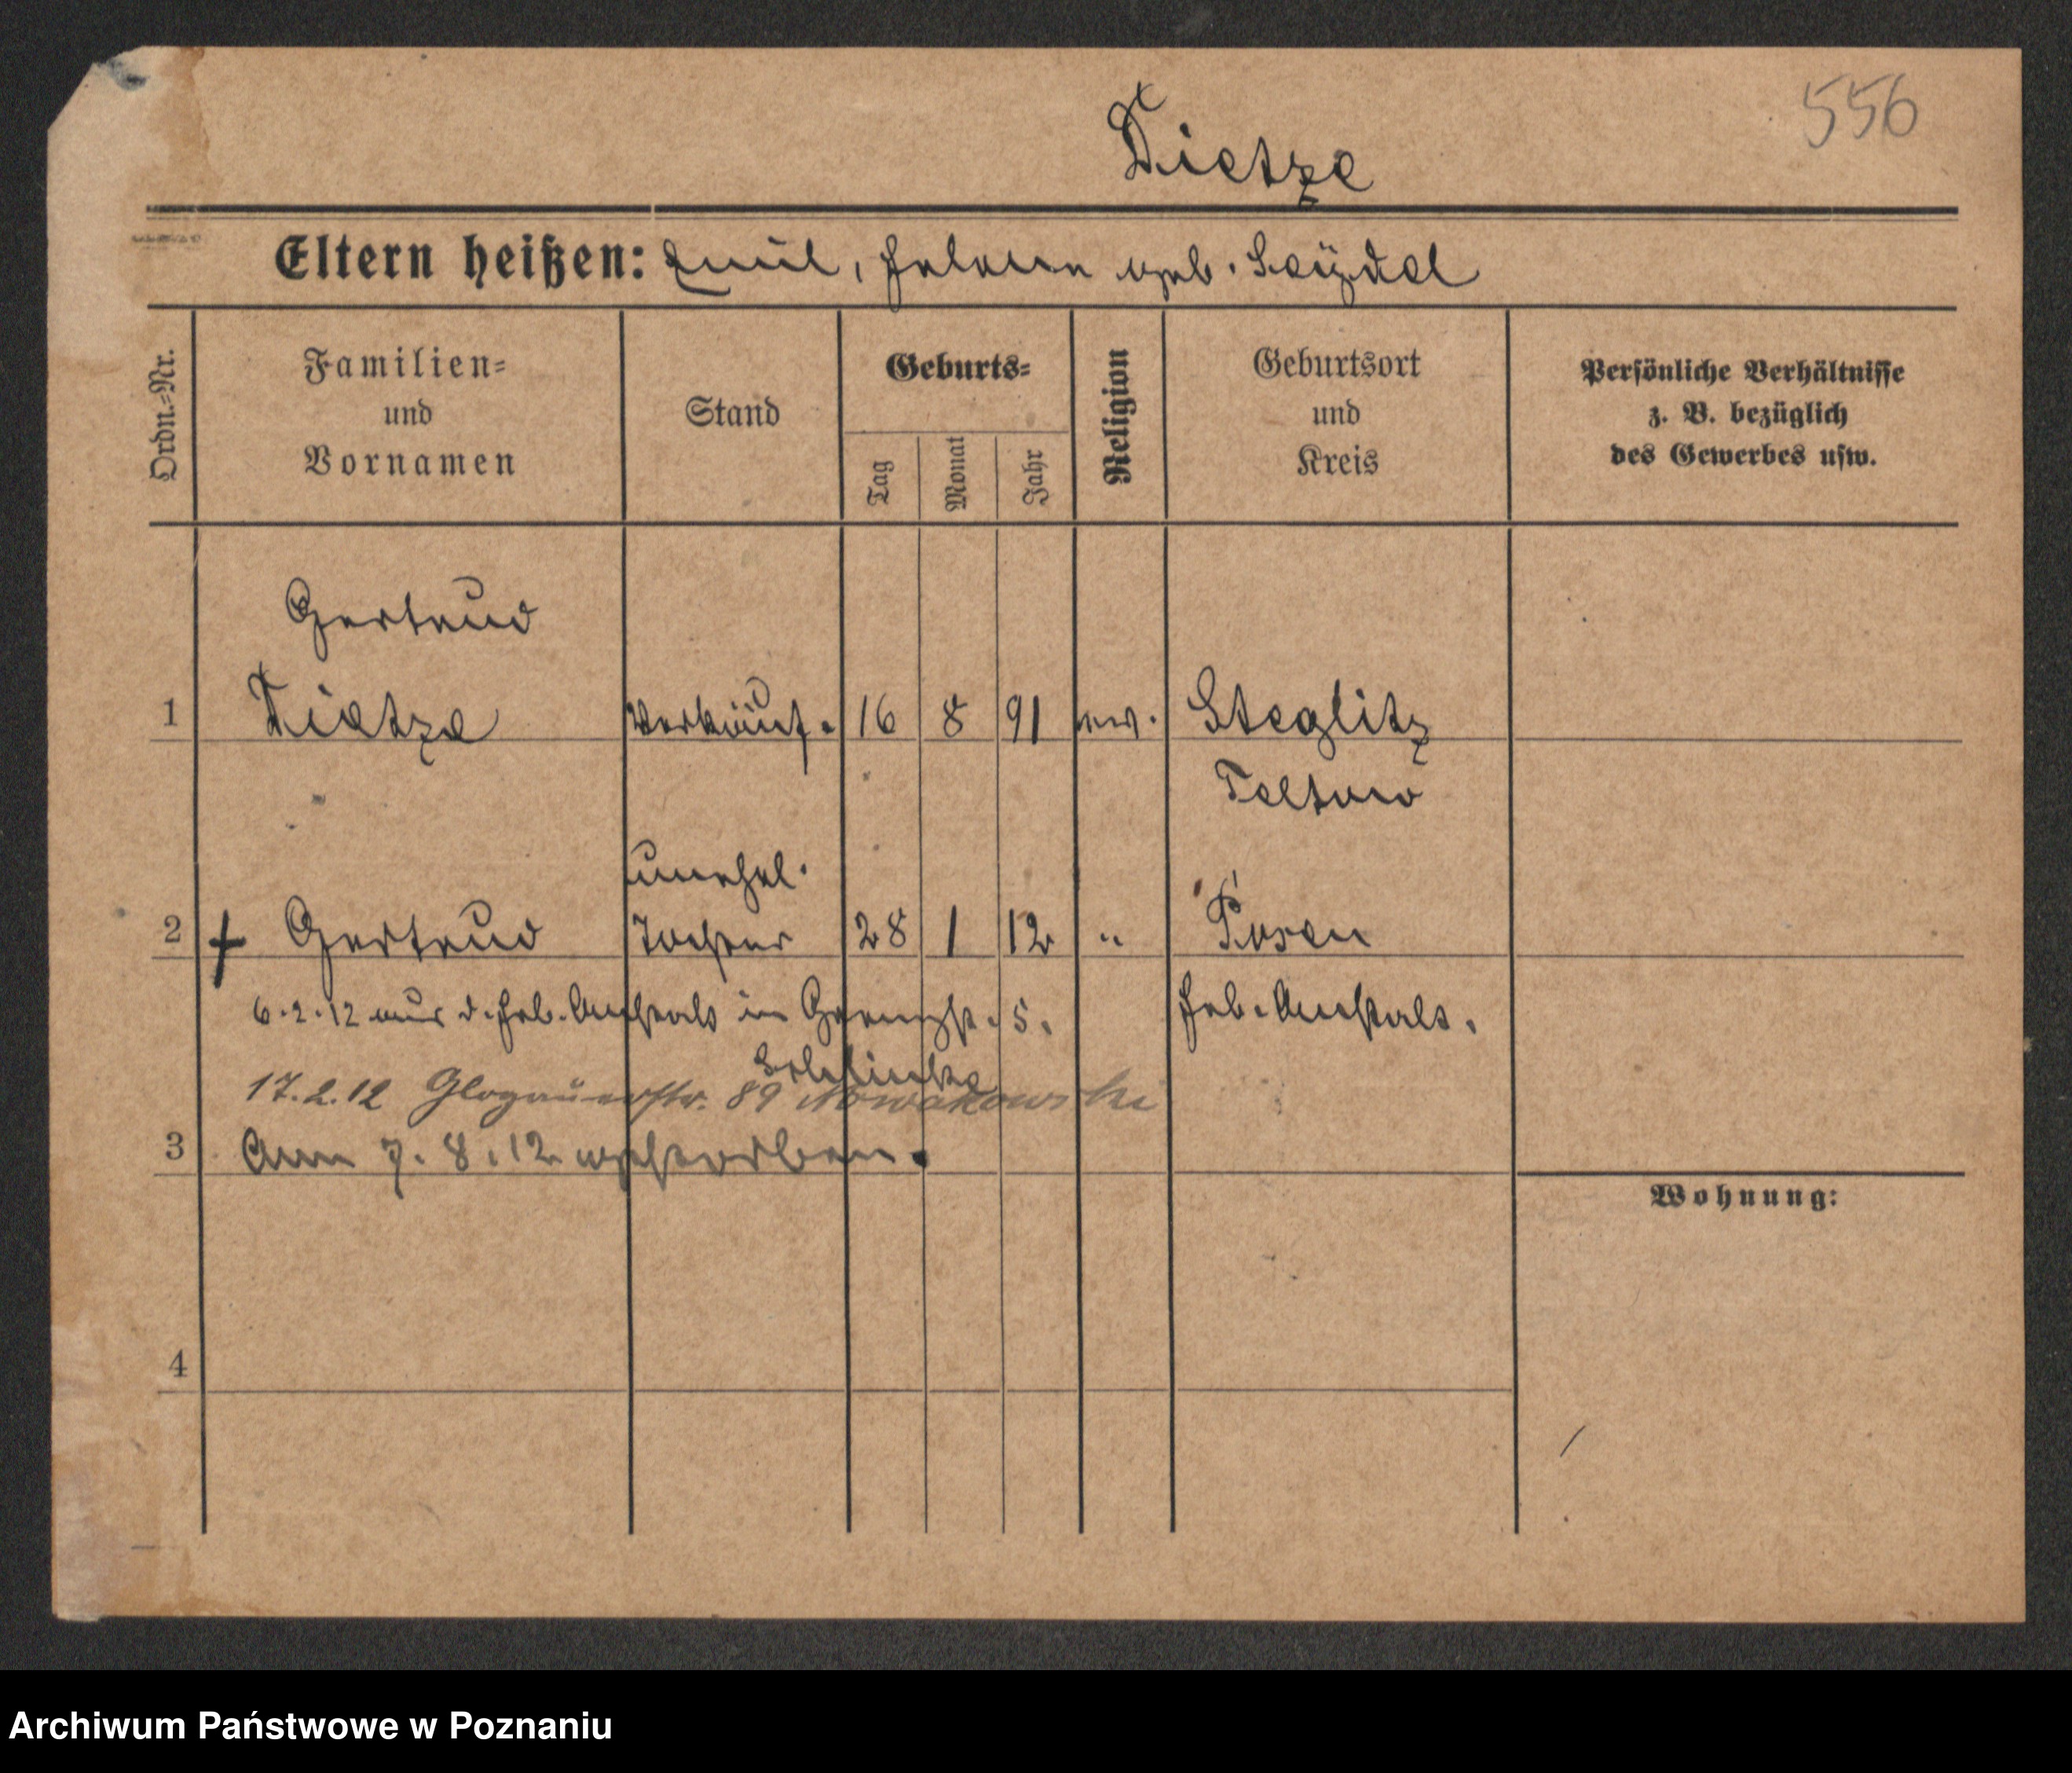 556
Dietze
Eltern heißen: Emil, Helene geb. Seydel
Ordn.-Nr.
Familien=
und
Vornamen
Stand
Geburts=
Tag
Monat
Jahr
Religion
Geburtsort
und
Kreis
Persönliche Verhältnisse
z. B. bezüglich
des Gewerbes usw.
Gertrud
1 Dietze Verkäuf. 16 8 91 ev. Steglitz
Teltow
unehel.
2 + Gertrud Tochter 28 1 12 " Posen
6.2.12 aus d. Heb. Anstalt in 5. Heb. Anstalt.
17.2.12 Glogauerstr. 89 Nowakowski
3 Am 7.8.12 gestorben.
Wohnung:
4
Archiwum Państwowe w Poznaniu